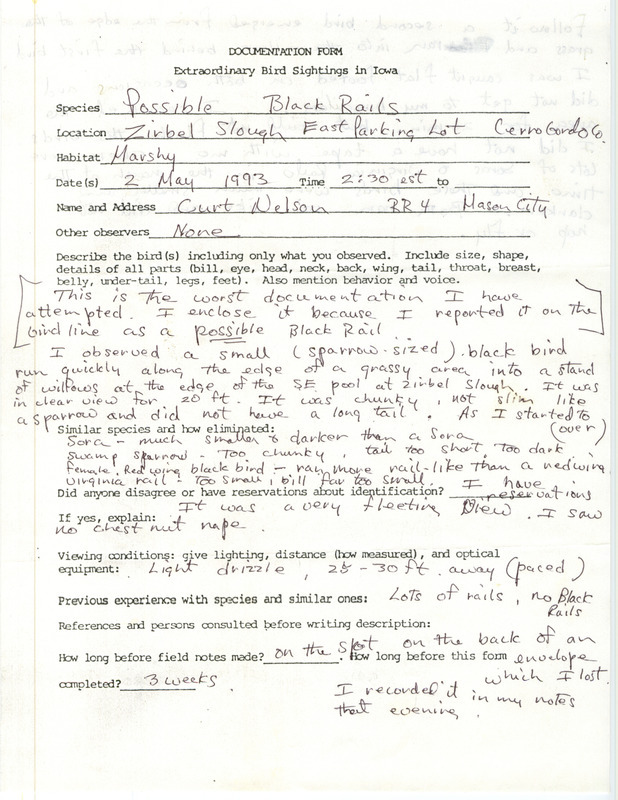 DOCUMENTATION FORM
Extraordinary Bird Sightings in Iowa
Species Possible Black Rails
Location Zirbel Slough East Parking Lot Cerro Gordo Co.
Habitat Marshy
Date(s) 2 May 1993 Time 2:30 est to
Name and Address Curt Nelson RR 4 Mason City
Other observers None
Describe the bird(s) including only what you observed. Include size, shape,
details of all parts (bill, eye, head, neck, back, wing, tail, throat, breast,
belly, under-tail, legs, feet). Also mention behavior and voice.
[This is the worst documentation I have
attempted. I enclose it because I reported it on the
birdline as a possible Black Rail]
I observed a small (sparrow-sized) black bird
run quickly along the edge of a grassy area into a stand
of willows at the edge of the SE pool at Zirbel Slough. It was
in clear view for 20 ft. It was chunky, not slim like
a sparrow and did not have a long tail. As I started to
(over)
Similar species and how eliminated:
Sora - much smaller & darker than a Sora
Swamp Sparrow - Too chunky, tail too short, too dark
female Redwing blackbird - ran more rail-like than a redwing
Virginia rail - Too small, bill far too small.
Did anyone disagree or have reservations about identification? I have reservations
If yes, explain: It was a very fleeting view. I saw
no chestnut nape.
Viewing conditions: give lighting, distance (how measured), and optical
equipment: Light drizzle, 25-30 ft. away (paced)
Previous experience with species and similar ones: Lots of rails, no Black
Rails
References and persons consulted before writing description:
How long before field notes made? on the spot on the back of an
envelope which I lost.
How long before this form
completed? 3 weeks
I recorded it in my notes
that evening.